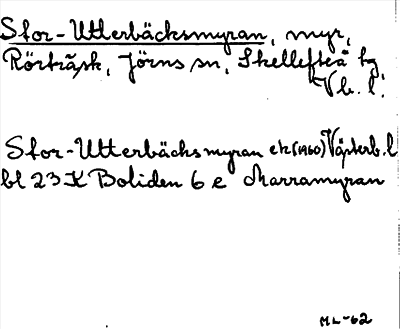 Stor-Utterbäcksmyran, myr,
Rörträsk, Jörns sn, Skellefteå tg
Vb. l.
Stor-Utterbäcksmyran ek (1960) Västerb. l
bl 23 K Boliden 6 e Marramyran
ML-62